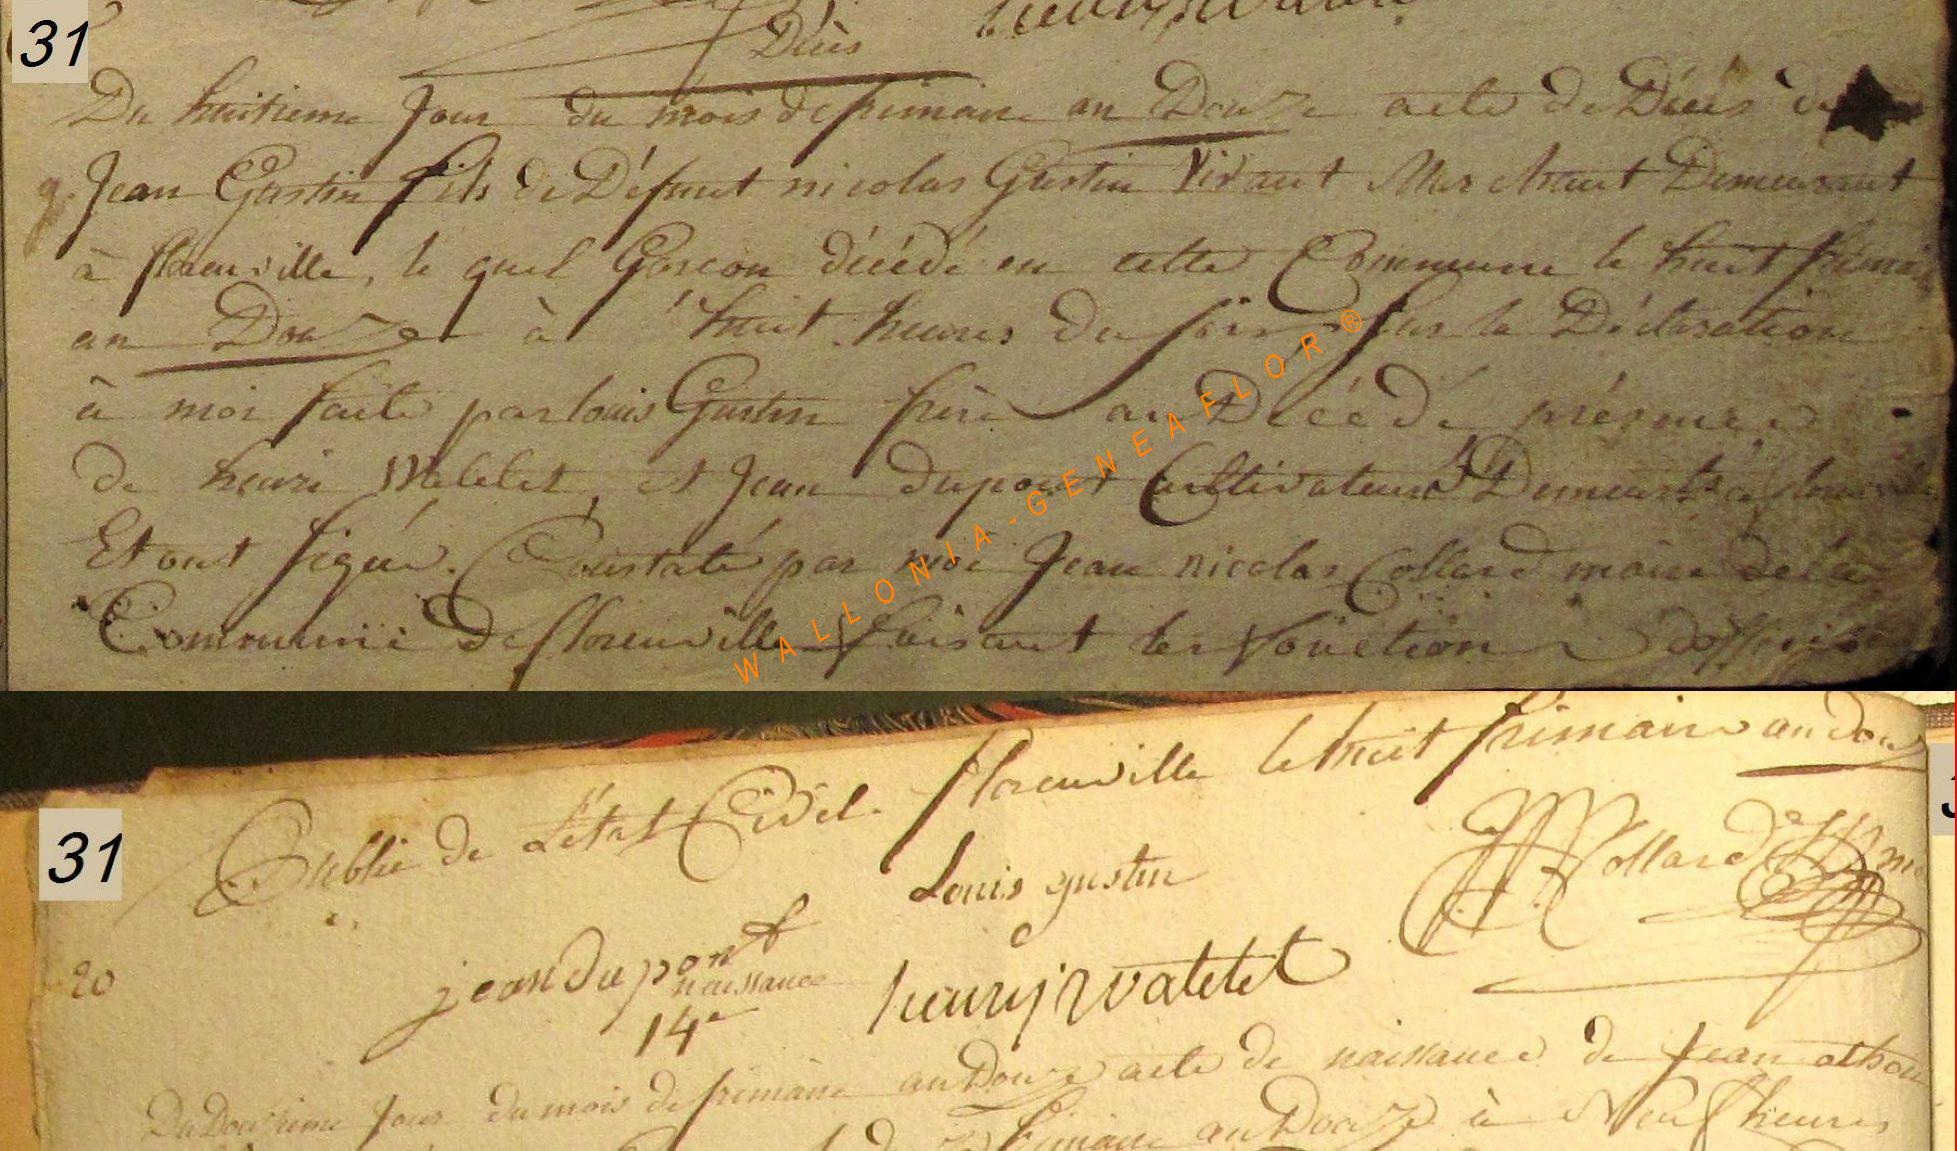 31
Décès
Du huitieme Jour du mois de frimaire an Douze acte de Décès de
9. Jean Gustin fils de Défunt nicolas Gustin Vivant Marchant Demeurant
à florenville, le quel Garcon décédé en cette Commune le huit frimaire
an Douze à huit heures du soir, sur la Déclaration
à moi faite par louis Gustin frère au Décédé
de henri Watelet, et Jean dupont Cultivateurs Demeurts à florenville
Et ont signé. Constaté par moi Jean nicolas Collard maire de la
Commune de florenville faisant les fonction d'officier
WALLONIA-GENEAFLOR®
31
Public de L'état Civil. florenville le huit frimaire an douze
Louis gustin
Collard
jean dupont
henry watelet
20
naissance
14e
Du Douzieme Jour du mois de frimaire an Douze acte de naissance de Jean
frimaire an Douze à Neuf heures